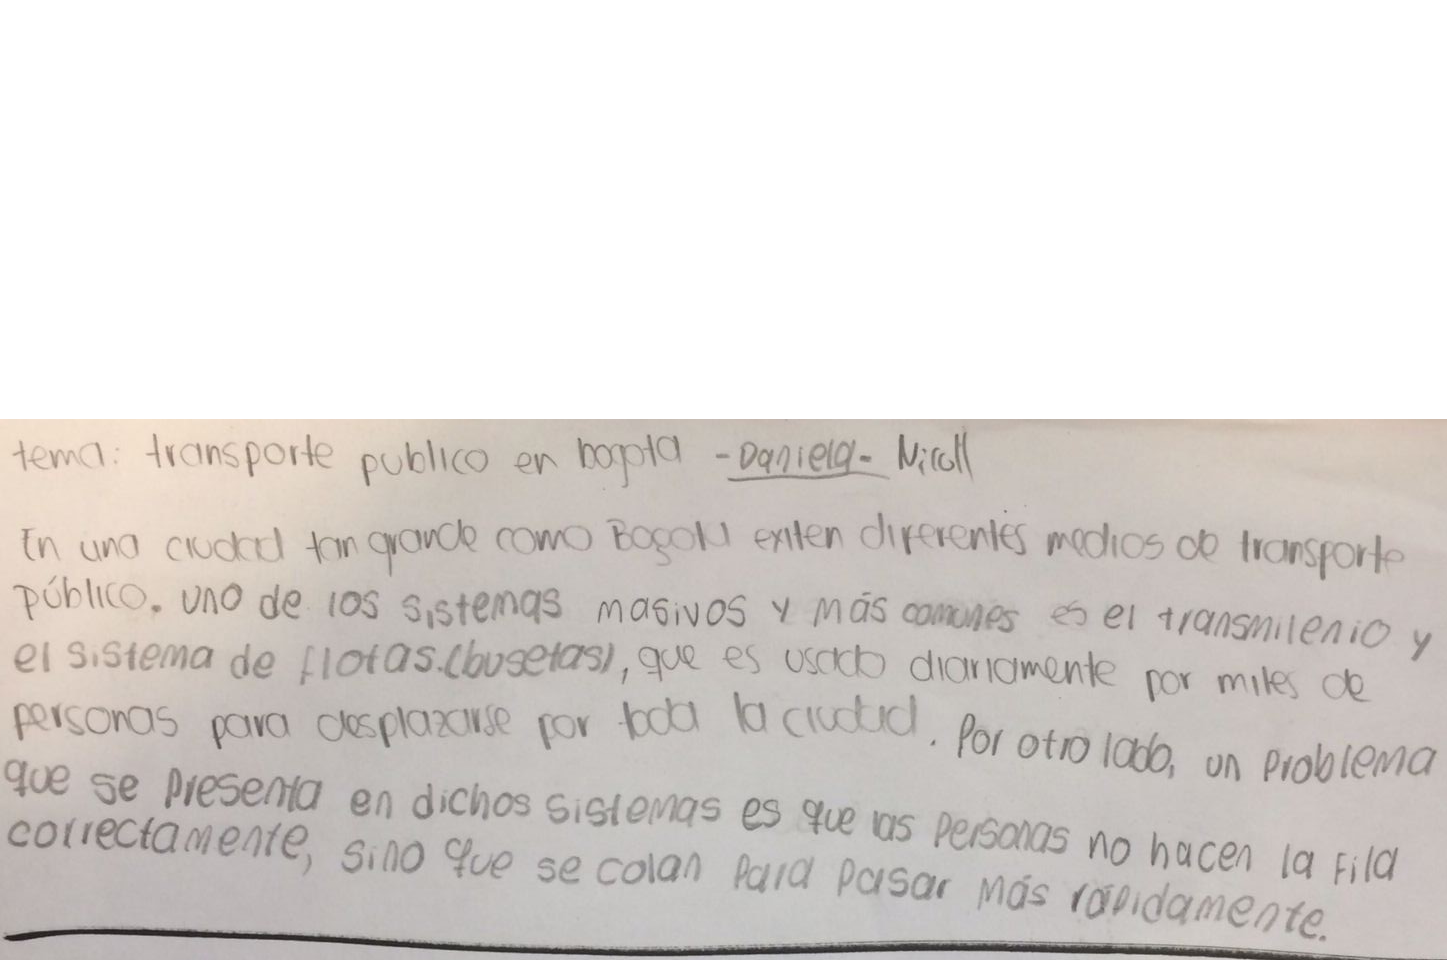 tema: transporte publico en bogota - Daniela - Nicoll
En una ciudad tan grande como Bogotá exiten diferentes medios de transporte
público. uno de los sistemas masivos y más comunes es el transmilenio y
el sistema de flotas.(busetas), que es usado diariamente por miles de
personas para desplazarse por toda la ciudad. Por otro lado, un problema
que se presenta en dichos sistemas es que las personas no hacen la fila
correctamente, sino que se colan para pasar más rápidamente.